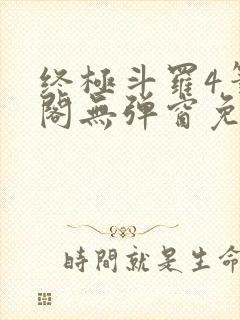 终極斗羅4
閣無弹窗免
時間就是生命